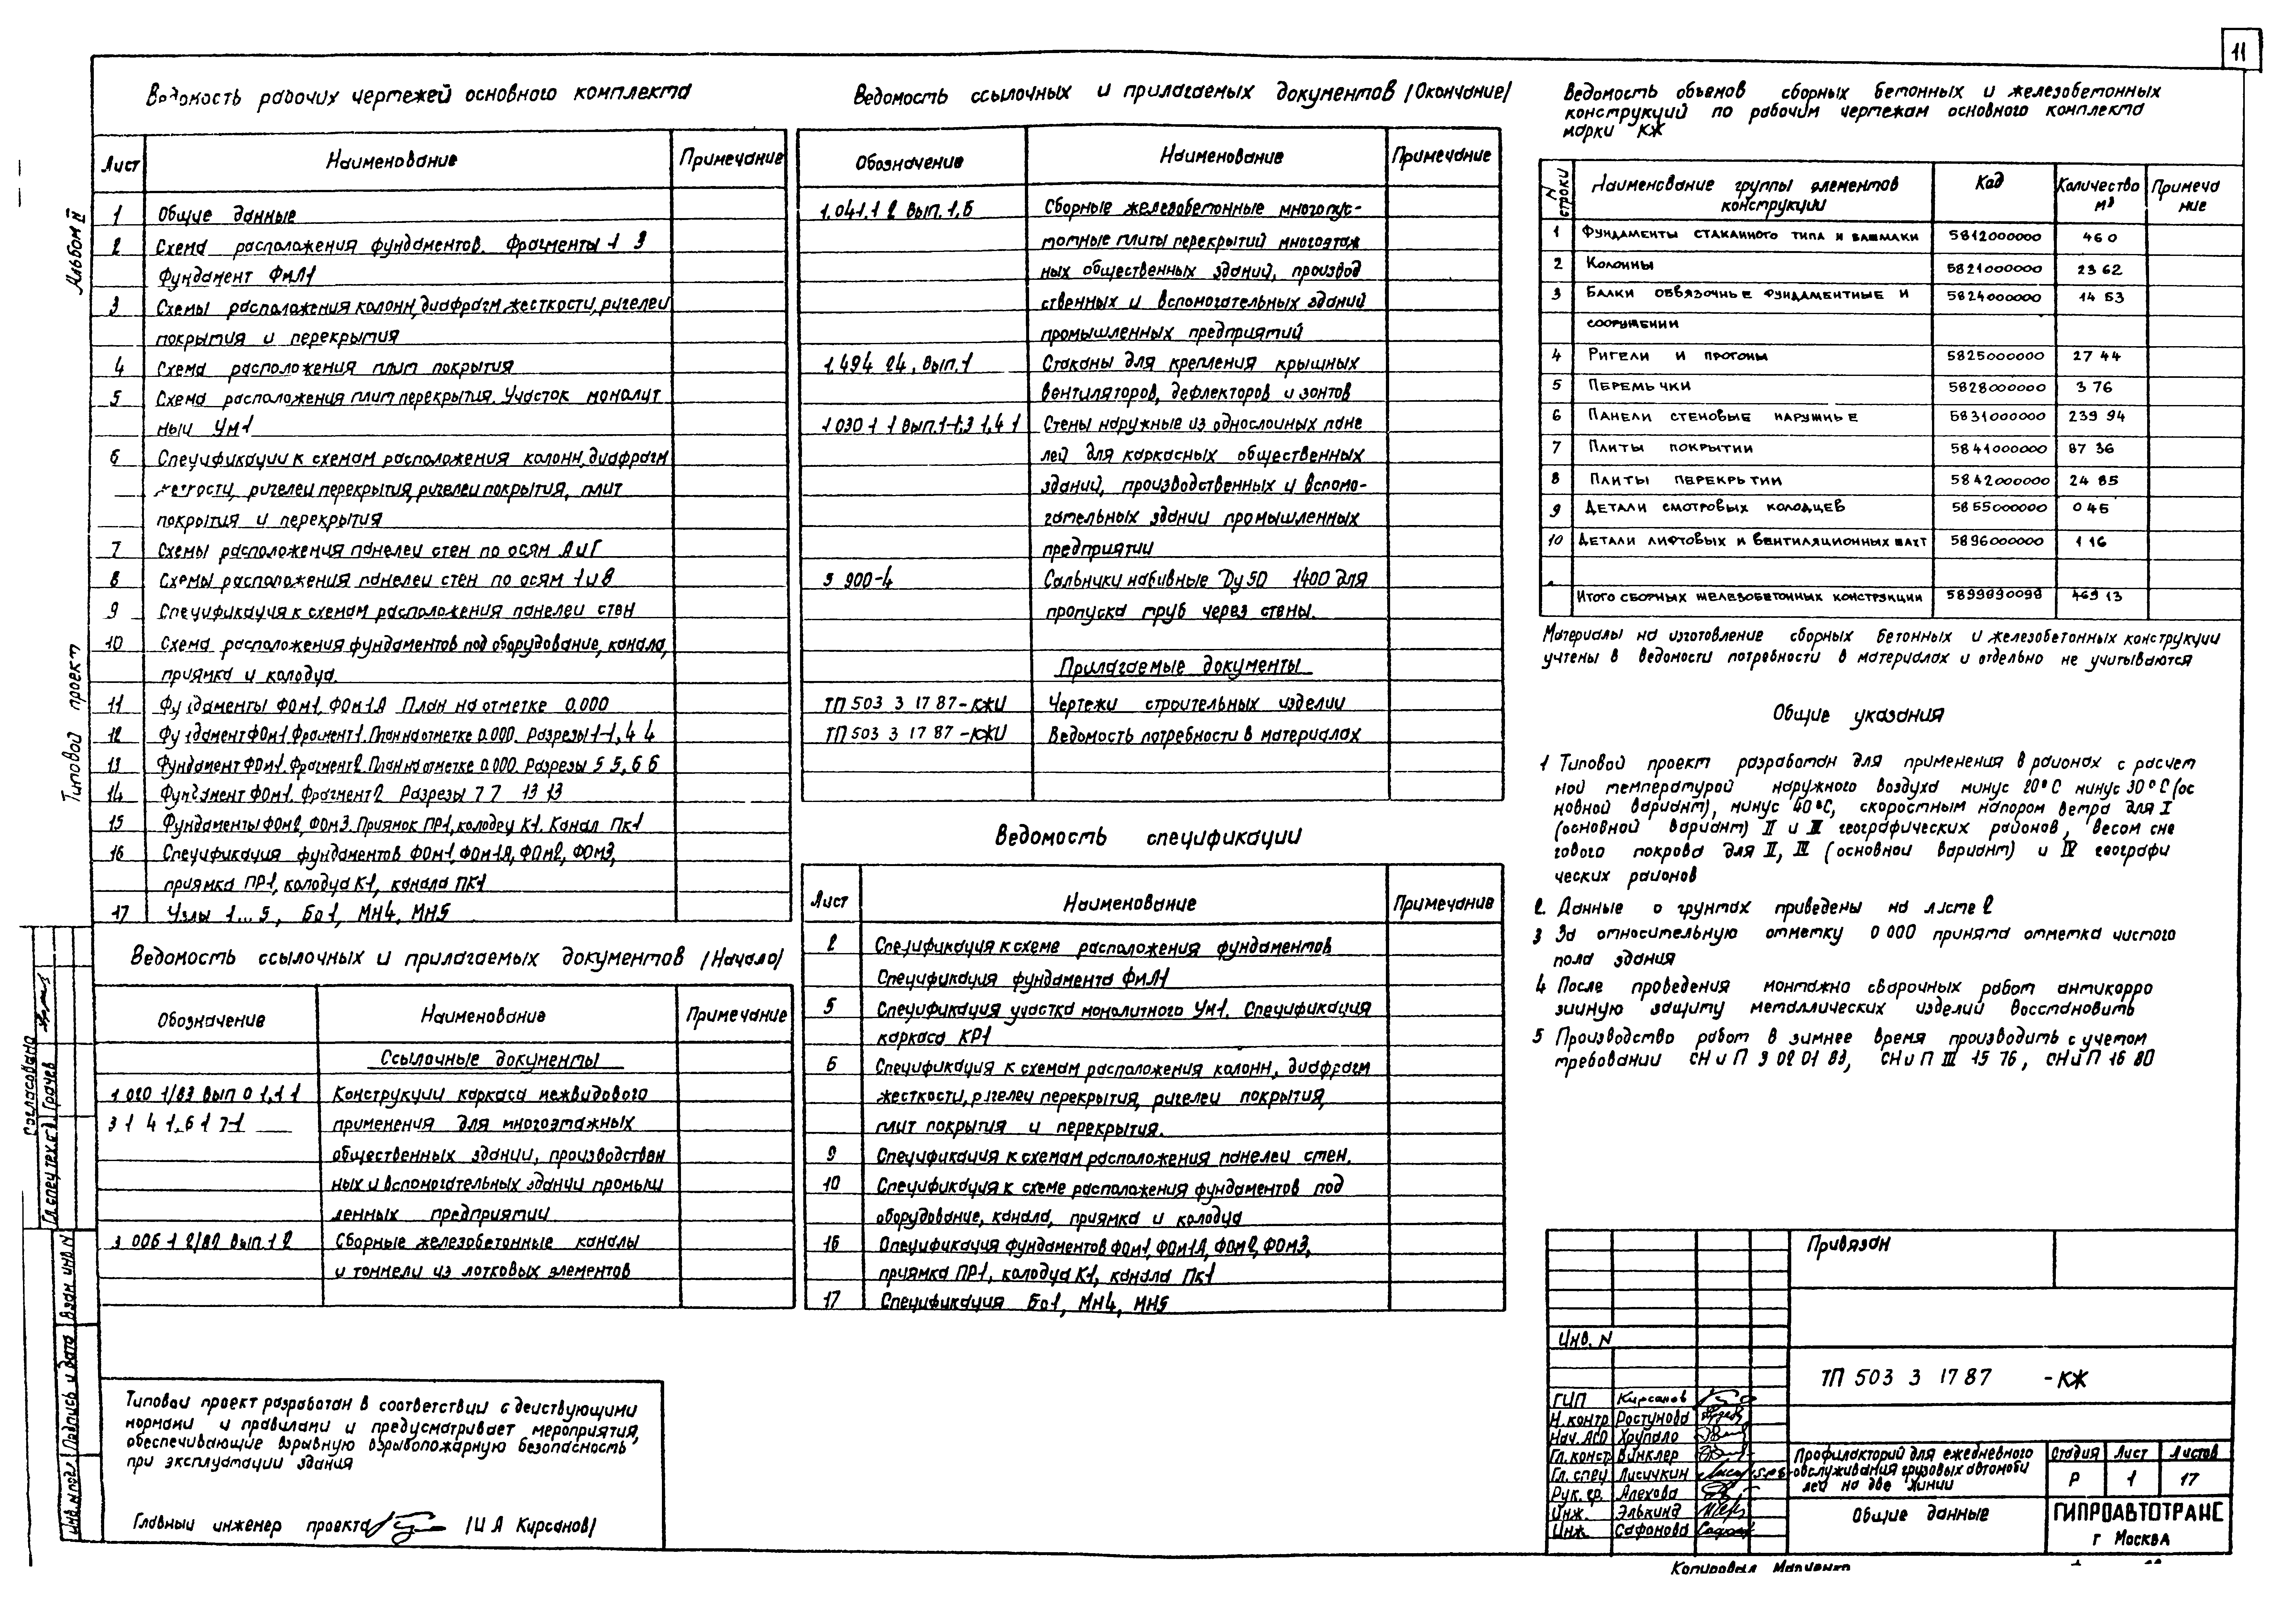 11
Альбом II
Типовой проект
Ведомость рабочих чертежей основного комплекта
Лист Наименование Примечание
1 Общие данные
2 Схема расположения фундаментов. Фрагменты 1 3
Фундамент ФмЛ1
3 Схемы расположения колонн, диафрагм жесткости, ригелеи
покрытия и перекрытия
4 Схема расположения плит покрытия
5 Схема расположения плит перекрытия. Участок монолит
ныи Ум1
6 Спецификации к схемам расположения колонн, диафрагм
ригелеи перекрытия, ригелеи покрытия, плит
покрытия и перекрытия
7 Схемы расположения панелеи стен по осям А и Г
8 Схемы расположения панелеи стен по осям 1 и 8
9 Спецификация к схемам расположения панелеи стен
10 Схема расположения фундаментов под оборудование, канала,
приямка и колодца.
11 Фундаменты ФОм1, ФОм1А План на отметке 0.000
12 Фундамент ФОм1 Фрагмент 1. План на отметке 0.000. Разрезы 1-1, 4 4
13 Фундамент ФОм1. Фрагмент 2. План на отметке 0.000. Разрезы 5 5, 6 6
14 Фундамент ФОм1. Фрагмент 2 Разрезы 7 7 13 13
15 Фундаменты ФОм2, ФОм3. Приямок ПР1, колодец К1. Канал Пк1
16 Спецификация фундаментов ФОм1, ФОм1А, ФОм2, ФОм3,
приямка ПР1, колодца К1, канала ПК1
17 Узлы 1...5, Бо1, МН4, МН5
Ведомость ссылочных и прилагаемых документов /Начало/
Обозначение Наименование Примечание
Ссылочные документы
1 020 1/83 Вып 0 1, 1 1 Конструкции каркаса межвидового
3 1 4 1, 6 1 7-1 применения для многоэтажных
общественных здании, производствен
ных и вспомогательных здании промыш
ленных предприятии
3 006 1 2/82 Вып. 1 2 Сборные железобетонные каналы
и тоннели из лотковых элементов
Типовой проект разработан в соответствии с деиствующими
нормами и правилами и предусматривает мероприятия,
обеспечивающие взрывную взрывопожарную безопасность
при эксплуатации здания
Главныи инженер проекта /И А Кирсанов/
Ведомость ссылочных и прилагаемых документов /Окончание/
Обозначение Наименование Примечание
1. 041.1 2 Вып. 1, 6 Сборные железобетонные многопус-
тотные плиты перекрытий многоэтаж
ных общественных зданий, производ
ственных и вспомогательных зданий
промышленных предприятий
1.494 24, Вып. 1 Стаканы для крепления крышных
вентиляторов, дефлекторов и зонтов
1 030 1 1 Вып. 1-1, 3 1, 4 1 Стены наружные из однослоиных пане
лей для каркасных общественных
зданий, производственных и вспомо-
гательных здании промышленных
предприятии
5 900-4 Сальники набивные Ду 50 1400 для
пропуска труб через стены.
Прилагаемые документы
ТП 503 3 17 87 -КЖИ Чертежи строительных изделии
ТП 503 3 17 87 -КЖИ Ведомость потребности в материалах
Ведомость спецификации
Лист Наименование Примечание
2 Спецификация к схеме расположения фундаментов
Спецификация фундамента ФмЛ1
5 Спецификация участка монолитного Ум1. Спецификация
каркаса КР1
6 Спецификация к схемам расположения колонн, диафрагм
жесткости, ригелеи перекрытия, ригелеи покрытия,
плит покрытия и перекрытия.
9 Спецификация к схемам расположения панелеи стен.
10 Спецификация к схеме расположения фундаментов под
оборудование, канала, приямка и колодца
16 Спецификация фундаментов ФОм1, ФОм1А, ФОм2, ФОм3,
приямка ПР1, колодца К1, канала Пк1
17 Спецификация Бо1, МН4, МН5
Ведомость объемов сборных бетонных и железобетонных
конструкций по рабочим чертежам основного комплекта
марки КЖ
N строки Наименование группы элементов конструкции Код Количество м³ Примечание
1 Фундаменты стаканного типа и башмаки 5812000000 46 0
2 Колонны 5821000000 23 62
3 Балки обвязочные фундаментные и 5824000000 14 53
сооружении
4 Ригели и прогоны 5825000000 27 44
5 Перемычки 5828000000 3 76
6 Панели стеновые наружные 5831000000 239 94
7 Плиты покрытии 5841000000 87 36
8 Плиты перекрытии 5842000000 24 85
9 Детали смотровых колодцев 5855000000 0 45
10 Детали лифтовых и вентиляционных шахт 5896000000 1 16
Итого сборных железобетонных конструкции 5899990099 469 13
Материалы на изготовление сборных бетонных и железобетонных конструкции
учтены в ведомости потребности в материалах и отдельно не учитываются
Общие указания
1 Типовой проект разработан для применения в раионах с расчет
ной температурой наружного воздуха минус 20°С минус 30°С (ос
новной вариант), минус 40°С, скоростным напором ветра для I
(основной вариант) II и III географических районов, весом сне
гового покрова для II, III (основнои вариант) и IV географи
ческих раионов
2. Данные о грунтах приведены на листе 2
3 За относительную отметку 0 000 принята отметка чистого
пола здания
4 После проведения монтажно сварочных работ антикорро
зииную защиту металлических изделий восстановить
5 Производство работ в зимнее время производить с учетом
требовании СНиП 3 02 01 83, СНиП III 15 76, СНиП 16 80
Привязан
Инв. N
ТП 503 3 17 87 -КЖ
ГИП Кирсанов
Н. контр Ростунова
Нач. АСО Хрупало
Гл. констр Винклер
Гл. спец Лисичкин
Рук. гр. Алехова
Инж. Элькинд
Инж. Сафонова
Профилакторий для ежедневного
обслуживания грузовых автомоби
лей на две линии
Стадия Лист Листов
Р 1 17
Общие данные
ГИПРОАВТОТРАНС
г Москва
Копировал
Согласовано
Гл. спец тех. отд. Грачев
Взам инв. N
Подпись и дата
Инв. N подл